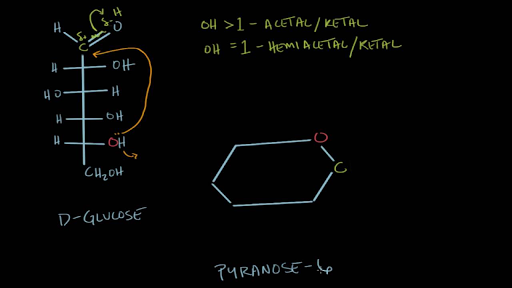 H
δ-
H
δ+
O
C
H
OH
HO
H
H
OH
H
OH
CH2OH
D-GLUCOSE
OH >1 - ACETAL/KETAL
OH =1 - HEMIACETAL/KETAL
O
C
PYRANOSE-6